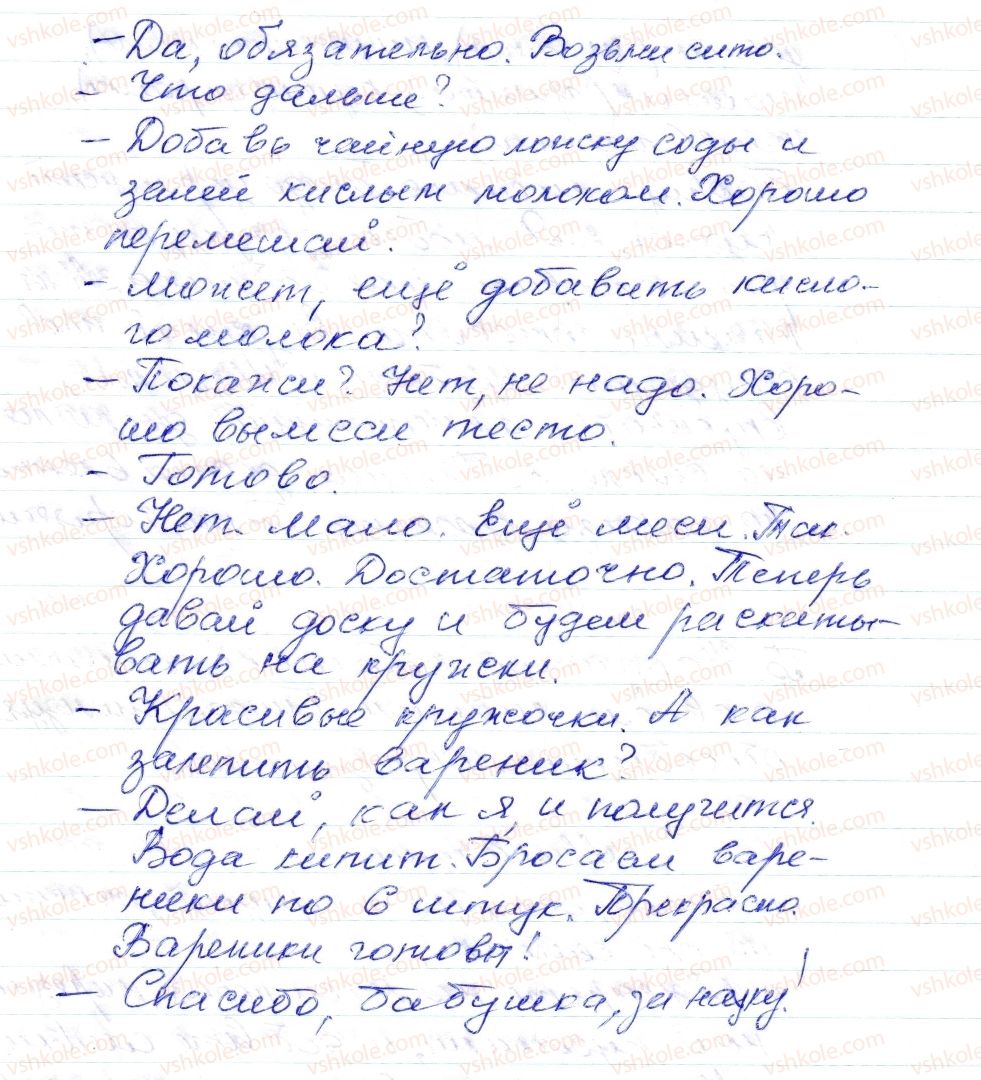 – Да, обязательно. Возьми сито.
– Что дальше?
– Добавь чайную ложку соды и
залей кислым молоком. Хорошо
перемешай.
– Может, ещё добавить кисло-
го молока?
– Покажи? Нет, не надо. Хоро-
шо вымеси тесто.
– Готово.
– Нет. Мало. Ещё меси. Так.
Хорошо. Достаточно. Теперь
давай доску и будем раскаты-
вать на кружки.
– Красивые кружочки. А как
залепить вареник?
– Делай, как я, и получится.
Вода кипит. Бросаем варе-
ники по 6 штук. Прекрасно.
Вареники готовы!
– Спасибо, бабушка, за науку!